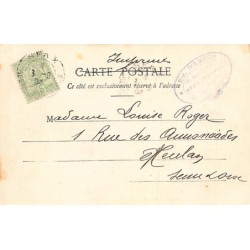 Imprimé
CARTE POSTALE
Ce côté est exclusivement réservé à l'adresse
Madame Louise Roger
1 Rue des Annonciades
Meulan
Seine & Oise